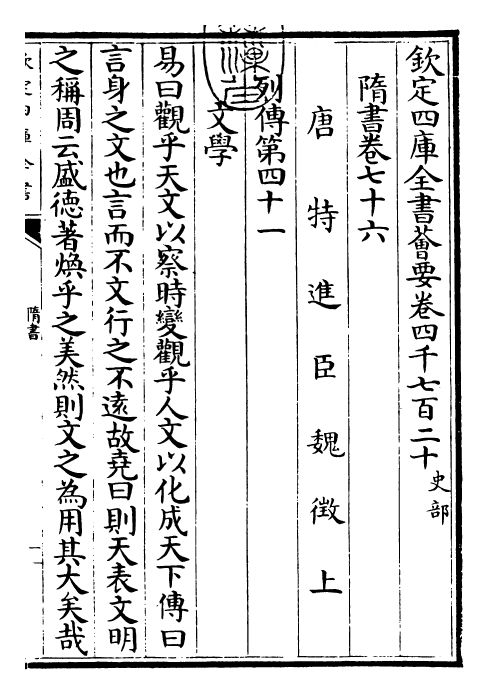 欽定四庫全書薈要卷四千七百二十 史部
隋書卷七十六
唐特進臣魏徵上
列傳第四十一
文學
易曰觀乎天文以察時變觀乎人文以化成天下傳曰
言身之文也言而不文行之不逺故堯曰則天表文明
之稱周云盛徳著煥乎之美然則文之為用其大矣哉
隋書